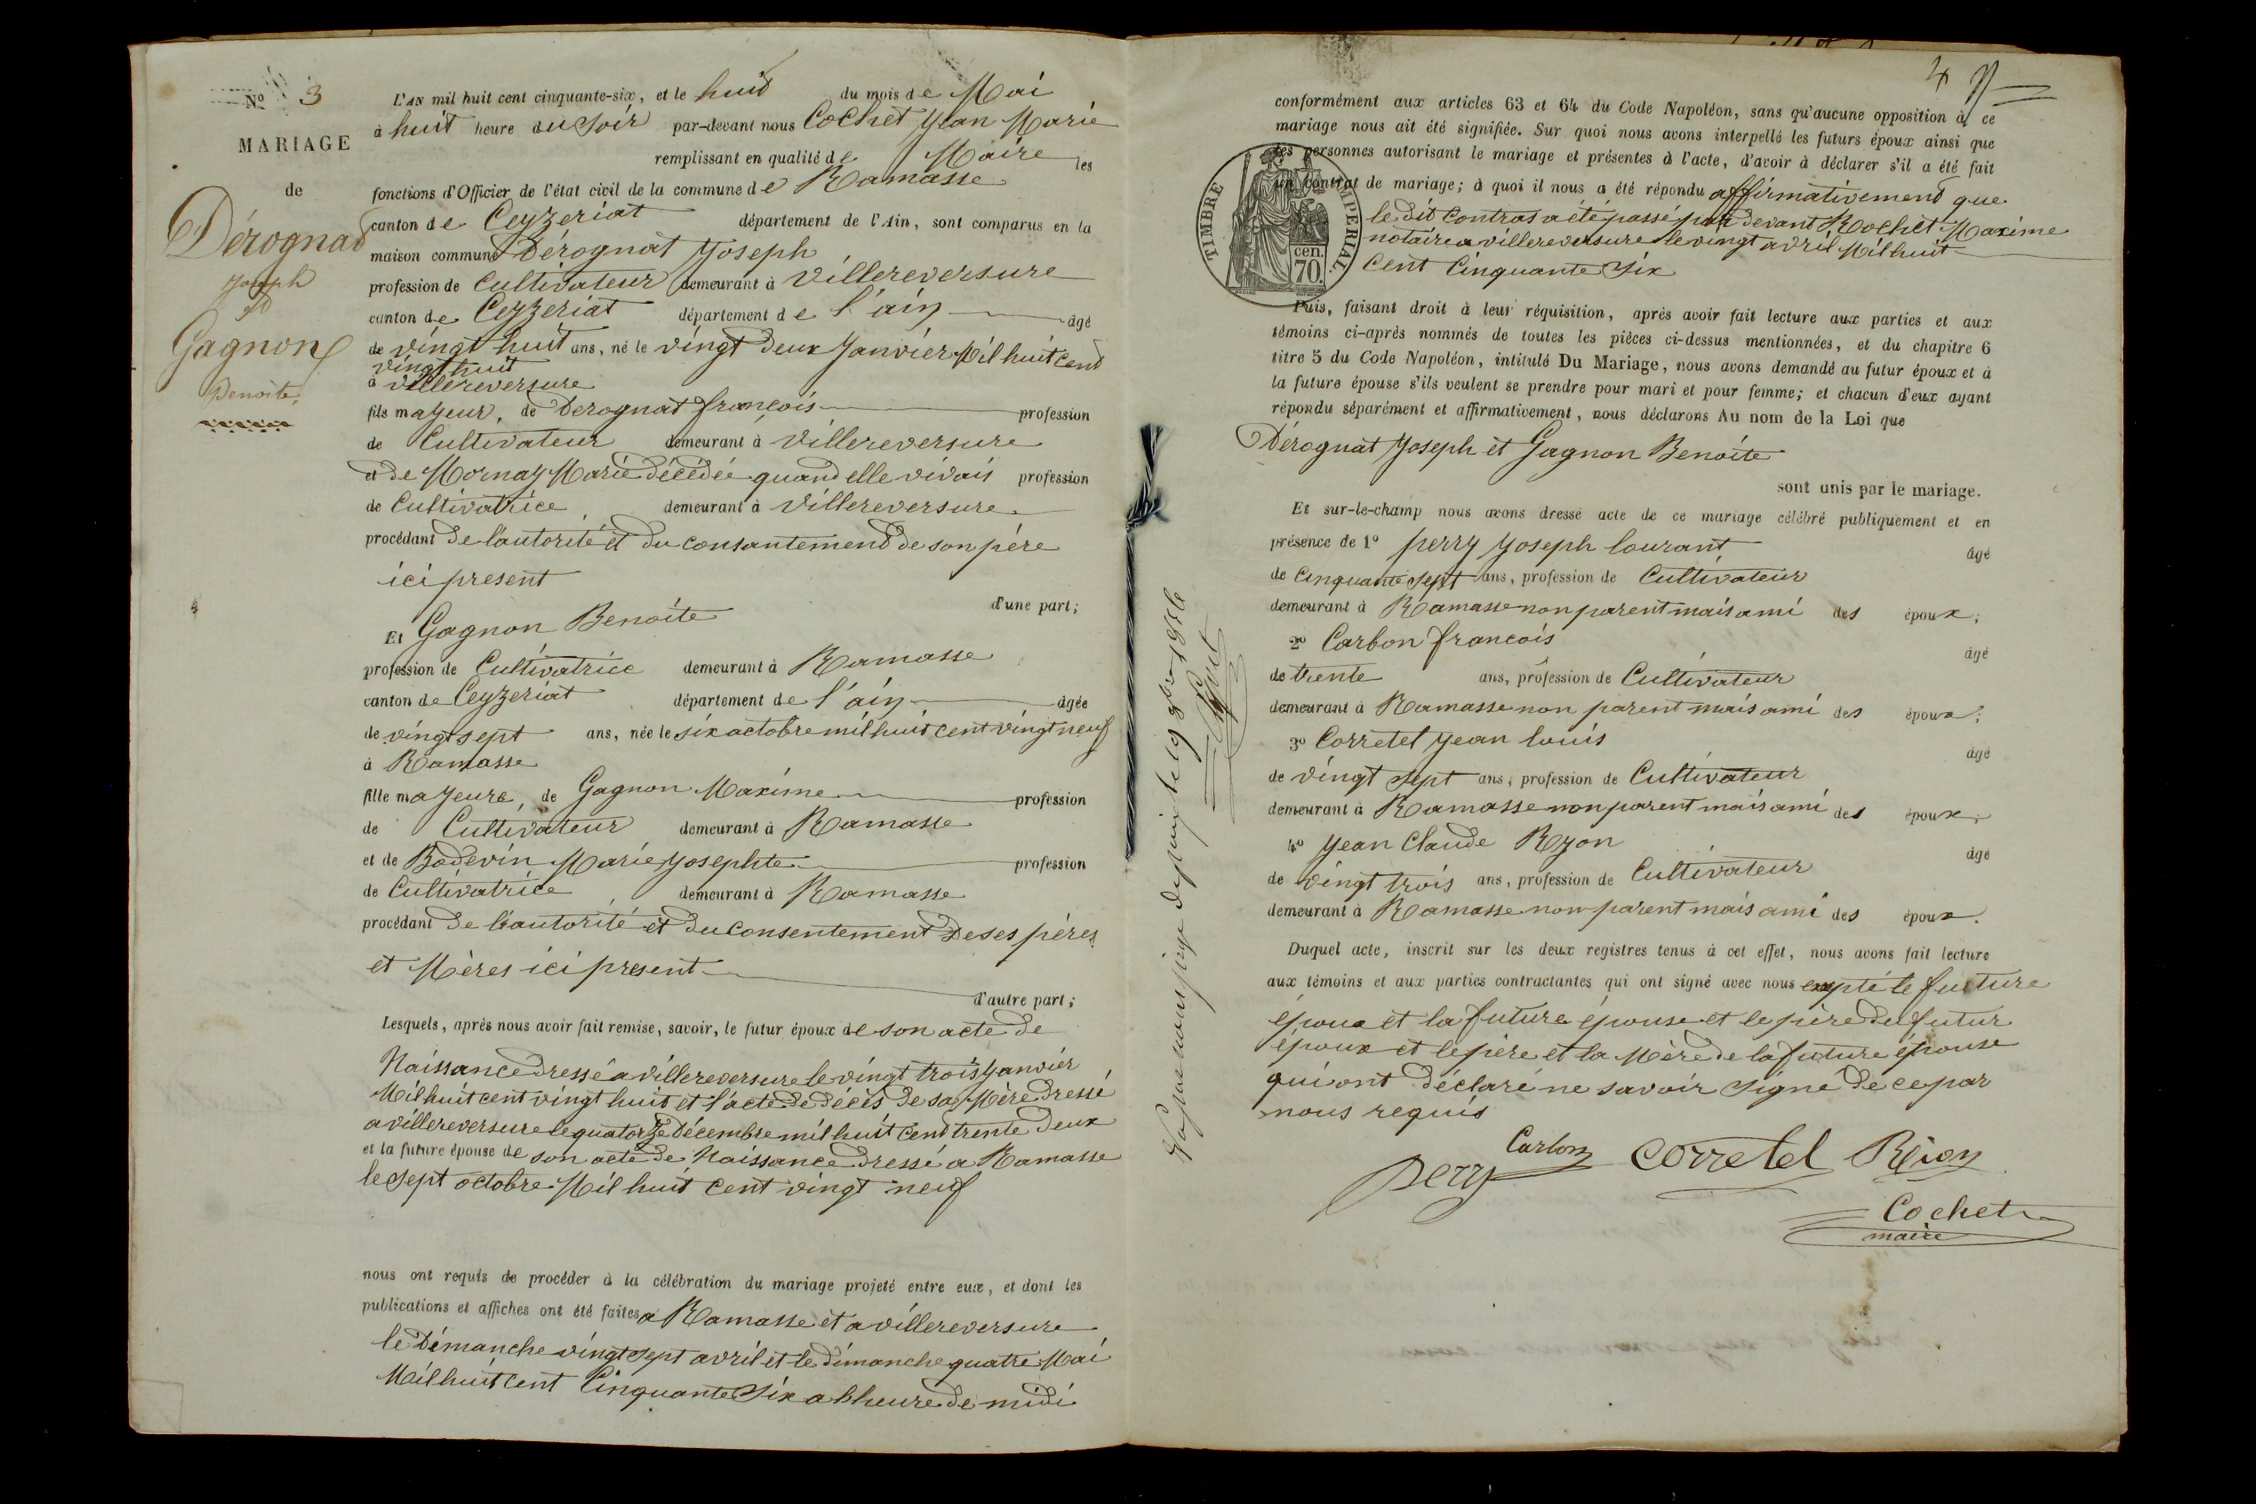 Nº 3
MARIAGE
de
Dérognat
Joseph
et
Gagnon
Benoite
L'AN mil huit cent cinquante-six, et le huit du mois de Mai
à huit heure du Soir par-devant nous Cochet Jean Marie
remplissant en qualité de Maire les
fonctions d'Officier de l'état civil de la commune de Ramasse
canton de Ceyzeriat département de l'Ain, sont comparus en la
maison commune Dérognat Joseph
profession de Cultivateur demeurant à Villereversure
canton de Ceyzeriat département de l'ain âgé
de vingt huit ans, né le vingt deux Janvier Mil huit cent
vingt huit
à Villereversure
fils majeur, de Derognat françois profession
de Cultivateur demeurant à Villereversure
et de Mornay Marie décédée quand elle vivais profession
de Cultivatrice demeurant à Villereversure
procédant de l'autorité et du consantement de son père
ici present
d'une part;
Et Gagnon Benoite
profession de Cultivatrice demeurant à Ramasse
canton de Ceyzeriat département de l'ain âgée
de vingt sept ans, née le six octobre mil huit cent vingt neuf
à Ramasse
fille majeure, de Gagnon Maxime profession
de Cultivateur demeurant à Ramasse
et de Bodevin Marie Josephte profession
de Cultivatrice demeurant à Ramasse
procédant de l'autorité et du consentement de ses pères
et Mères ici present
d'autre part;
Lesquels, après nous avoir fait remise, savoir, le futur époux de son acte de
Naissance dressé a villereversure le vingt trois Janvier
Mil huit cent vingt huit et l'acte de décès de sa Mère dressé
a villereversure le quatorze décembre mil huit cent trente deux
et la future épouse de son acte de Naissance dressé a Ramasse
le sept octobre Mil huit cent vingt neuf
nous ont requis de procéder à la célébration du mariage projeté entre eux, et dont les
publications et affiches ont été faites a Ramasse et a villereversure
le Dimanche vingt sept avril et le dimanche quatre Mai
Mil huit cent Cinquante Six a l'heure de midi
4
conformément aux articles 63 et 64 du Code Napoléon, sans qu'aucune opposition à ce
mariage nous ait été signifiée. Sur quoi nous avons interpellé les futurs époux ainsi que
les personnes autorisant le mariage et présentes à l'acte, d'avoir à déclarer s'il a été fait
un contrat de mariage; à quoi il nous a été répondu affirmativement que
le dit Contrat a été passé par devant Rochet Maxime
notaire a villereversure le vingt avril Mil huit
cent Cinquante Six
TIMBRE IMPERIAL
cen.
70.
Puis, faisant droit à leur réquisition, après avoir fait lecture aux parties et aux
témoins ci-après nommés de toutes les pièces ci-dessus mentionnées, et du chapitre 6
titre 5 du Code Napoléon, intitulé Du Mariage, nous avons demandé au futur époux et à
la future épouse s'ils veulent se prendre pour mari et pour femme; et chacun d'eux ayant
répondu séparément et affirmativement, nous déclarons Au nom de la Loi que
Dérognat Joseph et Gagnon Benoite
sont unis par le mariage.
Et sur-le-champ nous avons dressé acte de ce mariage célébré publiquement et en
présence de 1º perry Joseph lourant âgé
de Cinquante sept ans, profession de Cultivateur
demeurant à Ramasse non parent mais ami des époux;
2º Carbon francois âgé
de trente ans, profession de Cultivateur
demeurant à Ramasse non parent mais ami des époux;
3º Corretel Jean louis âgé
de vingt sept ans, profession de Cultivateur
demeurant à Ramasse non parent mais ami des époux;
4º Jean Claude Ryon âgé
de vingt trois ans, profession de Cultivateur
demeurant à Ramasse non parent mais ami des époux.
Duquel acte, inscrit sur les deux registres tenus à cet effet, nous avons fait lecture
aux témoins et aux parties contractantes qui ont signé avec nous expté le future
époux et la future épouse et le père du futur
époux et le père et la Mère de la future épouse
qui ont déclaré ne savoir Signé de ce par
nous requis
Carbon Corretel Reion
Perry
Cochet
maire